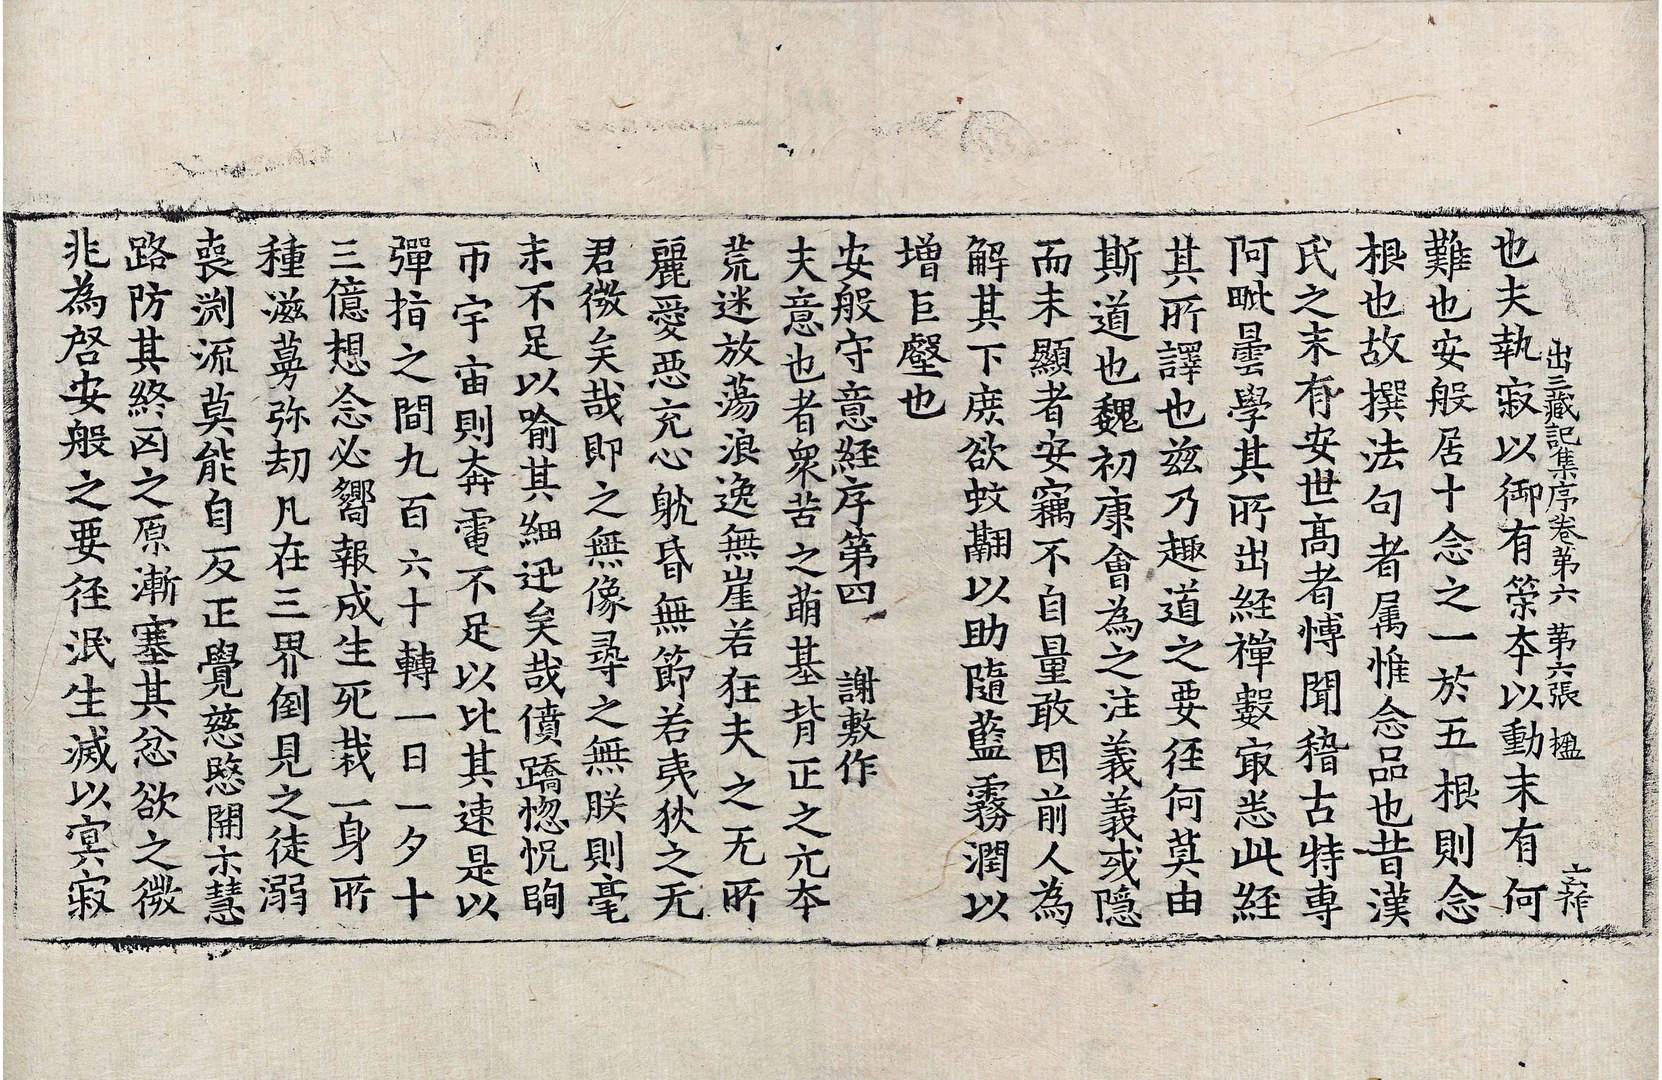 出三藏記集序卷第六 第六張 楹
也夫執寂以御有策夲以動末有何
難也安般居十念之一於五根則念
根也故撰法句者属惟念品也昔漢
氏之末有安世高者博聞稽古特專
阿毗曇學其所出經禪數最悉此經
其所譯也茲乃趣道之要徑何莫由
斯道也魏初康會為之注義義或隱
而未顯者安竊不自量敢因前人為
解其下庶欲蚊翮以助隨藍霧潤以
增巨壑也
安般守意經序第四 謝敷作
夫意也者衆苦之萌基背正之亢夲
荒迷放蕩浪逸無崖若狂夫之无所
麗愛惡充心躭昏無節若夷狄之无
君微矣哉即之無像尋之無朕則毫
末不足以喻其細迅矣哉僨蹻惚怳眴
帀宇宙則奔電不足以比其速是以
彈指之間九百六十轉一日一夕十
三億想念必嚮報成生死栽一身所
種滋蔓弥劫凡在三界倒見之徒溺
喪渕流莫能自反正覺慈愍開示慧
路防其終凶之原漸塞其忿欲之微
兆為啓安般之要徑泯生滅以冥寂